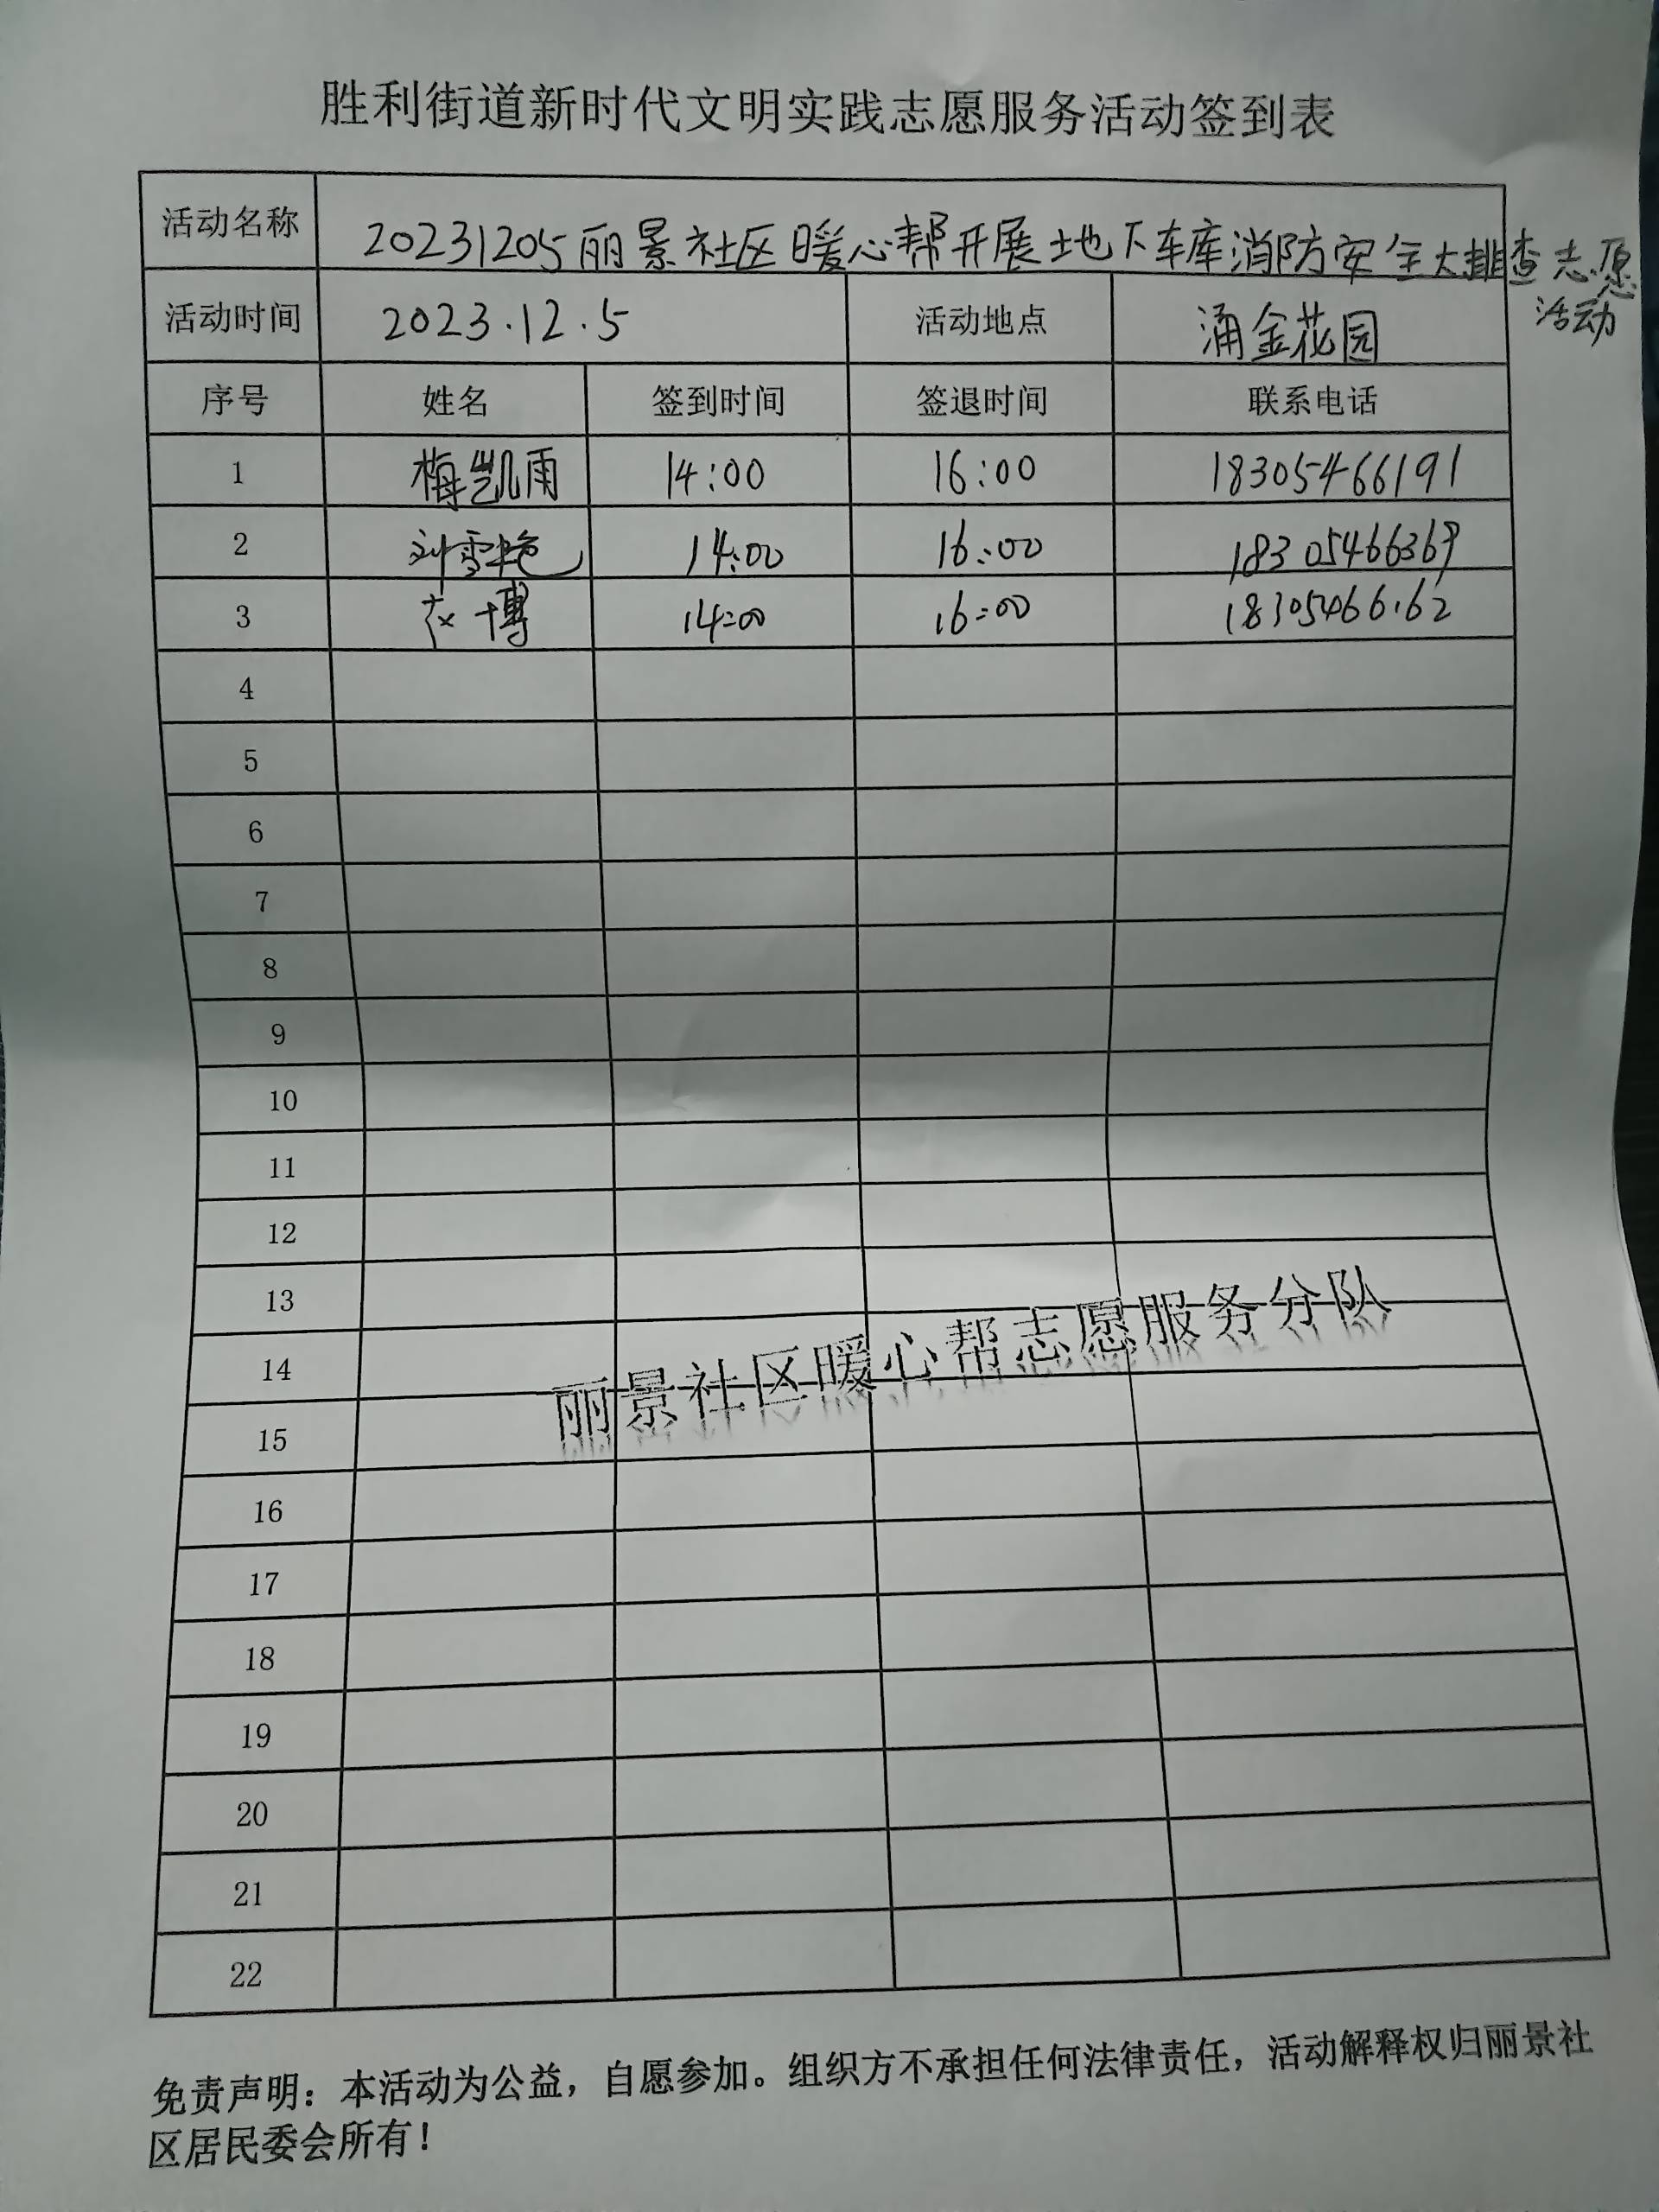 胜利街道新时代文明实践志愿服务活动签到表
活动名称 20231205丽景社区暖心帮开展地下车库消防安全大排查志愿
活动
活动时间 2023.12.5 活动地点 涌金花园
序号 姓名 签到时间 签退时间 联系电话
1 梅凯雨 14:00 16:00 18305466191
2 刘雪艳 14:00 16:00 18305466369
3 博 14:00 16:00 18305466162
4
5
6
7
8
9
10
11
12
13
14
丽景社区暖心帮志愿服务分队
15
16
17
18
19
20
21
22
免责声明：本活动为公益，自愿参加。组织方不承担任何法律责任，活动解释权归丽景社
区居民委会所有！